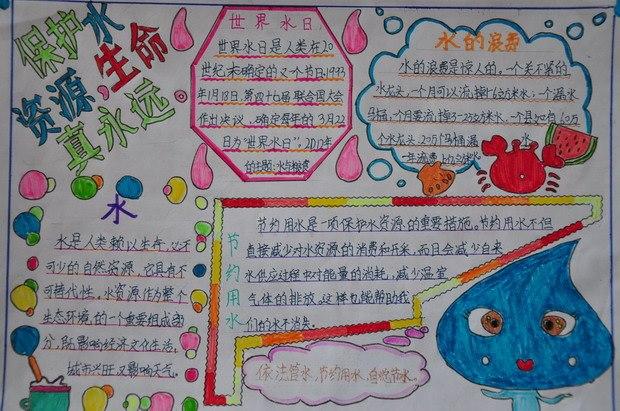 保护水
资源,生命
真永远
世界水日
世界水日是人类在20
世纪末确定的又个节日,1993
年1月18日,第四十七届联合国大会
作出决议,确定每年的3月22
日为“世界水日”,2012年
的主题:水与粮食
水的浪费
水的浪费是惊人的。一个关不紧的
水龙头,一个月可以流掉
一个漏水
马桶,一个月要流掉3-25立方米水,一个县如有60万
个水龙头,20万个马桶漏水
一年流费上亿立方米
水
水是人类赖以生存,必不
可少的自然资源,它具有不
可替代性,水资源作为整个
生态环境的一个重要组成部
分,既影响经济文化生活,
城市兴旺又影响天气。
节约用水
节约用水是一项保护水资源的重要措施。节约用水不但
直接减少对水资源的消费和开采,而且会减少自来
水供应过程中对能量的消耗,减少温室
气体的排放,这样也能帮助我
们的水不消失。
依法管水,节约用水,自觉节水。